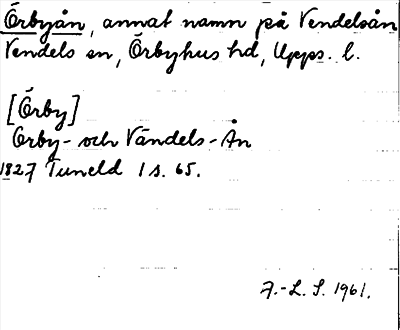 Örbyån, annat namn på Vendelsån
Vendels sn, Örbyhus hd, Upps. l.
[Örby]
Örby- och Vändels-Ån
1827 Tuneld 1 s. 65.
F.-L. S. 1961.